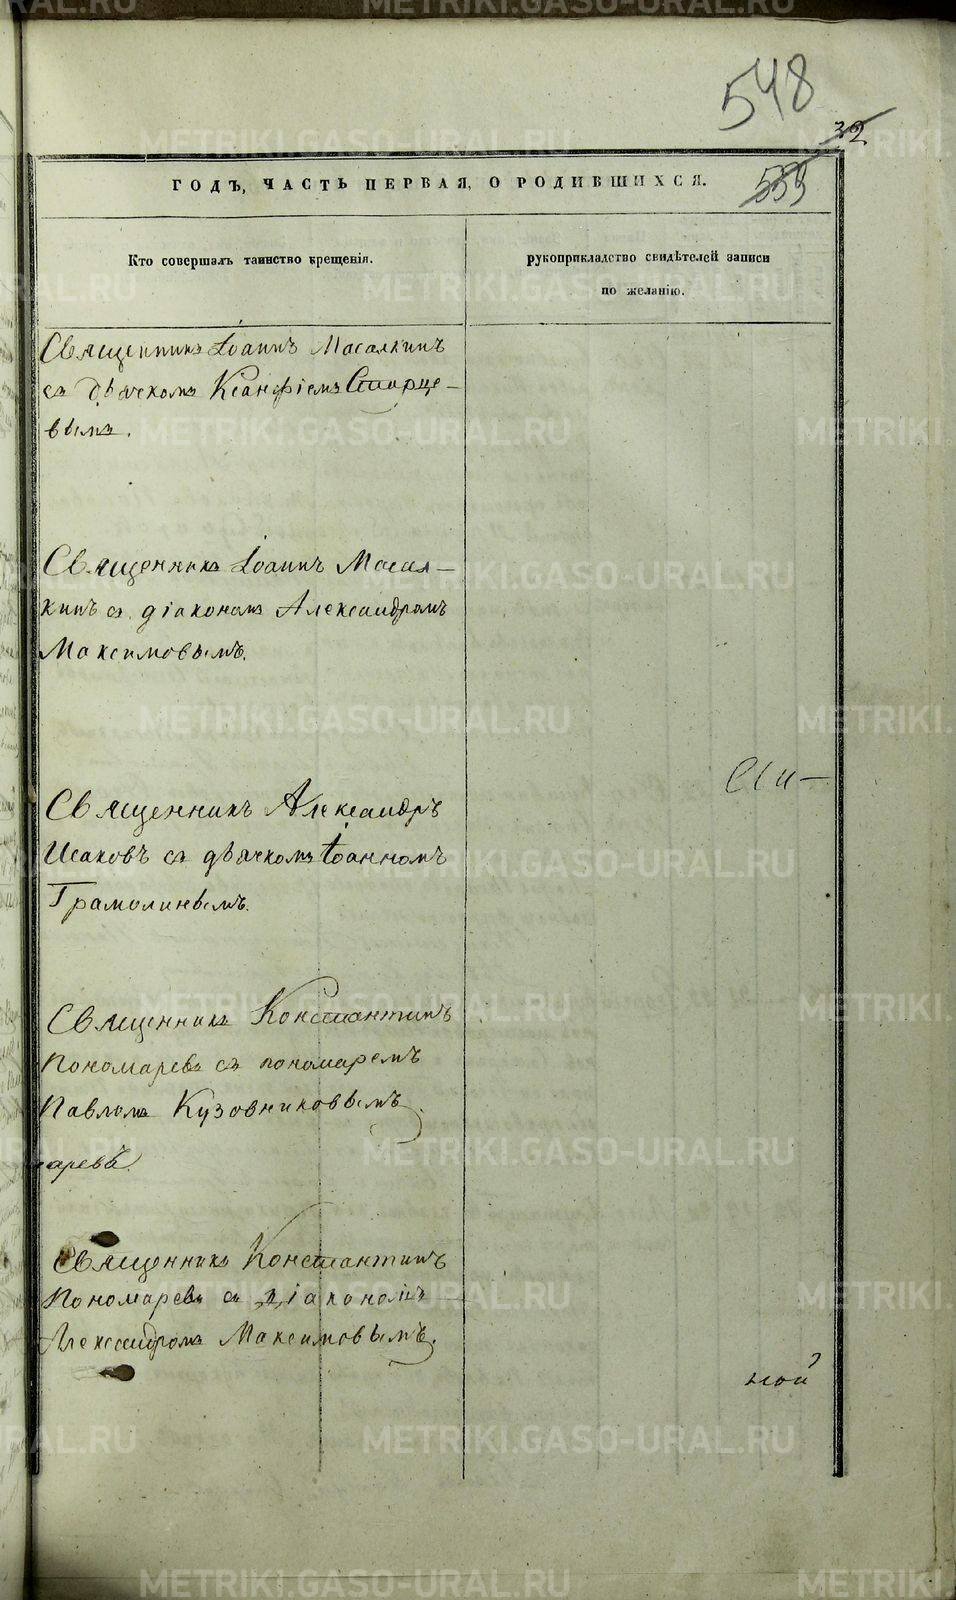 548
32
559
ГОДЪ, ЧАСТЬ ПЕРВАЯ, О РОДИВШИХСЯ.
Кто совершалъ таинство крещенія.
рукоприкладство свидѣтелей записи
по желанію.
Священникъ Іоаннъ Масалкинъ
съ дьячкомъ Ксанфіемъ Старце-
вымъ.
Священникъ Іоаннъ Масал-
кинъ съ діакономъ Александромъ
Максимовымъ.
Сти-
Священникъ Александръ
Исаковъ съ дьячкомъ Іоанномъ
Грамолинымъ.
Священникъ Константинъ
Пономаревъ съ пономаремъ
Павломъ Кузовниковымъ.
аревъ
Священникъ Константинъ
Пономаревъ съ діакономъ
Александромъ Максимовымъ.
ной
METRIKI.GASO-URAL.RU